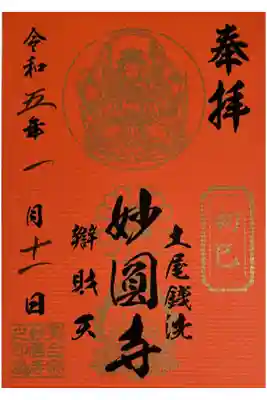 奉拝
初巳
土屋銭洗
妙圓寺
辯財天
令和五年一月十一日